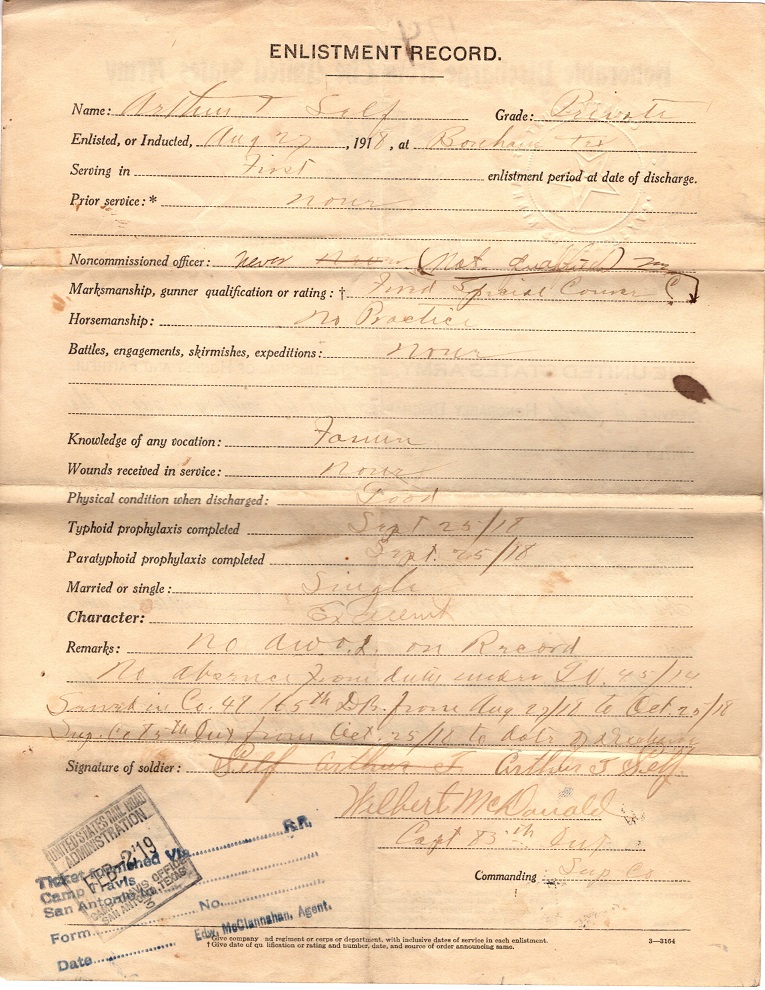 ENLISTMENT RECORD.
Name: Arthur T Self Grade: Private
Enlisted, or Inducted, Aug 27, 1918, at Bonham Tex
Serving in First enlistment period at date of discharge.
Prior service: * None
Noncommissioned officer: Never None (Not
Marksmanship, gunner qualification or rating: † Special Course
Horsemanship: No Practice
Battles, engagements, skirmishes, expeditions: None
Knowledge of any vocation: Farmer
Wounds received in service: None
Physical condition when discharged: Good
Typhoid prophylaxis completed Sept 25/18
Paratyphoid prophylaxis completed Sept. 25/18
Married or single: Single
Character: Excellent
Remarks: No A.W.O.L. on Record
No absence from duty under G.O. 45/14
Served in Co. 47 165th D.B. from Aug 27/18 to Oct. 25/18
Sup. Co Inf from Oct. 25/18 to date of discharge
Signature of soldier: Self Arthur T. Arthur T Self.
Wilbert McDonald
Capt Inf
Commanding Sup Co
UNITED STATES RAIL ROAD
ADMINISTRATION
FEB 2 '19
CAMP TRAVIS OFFICE
SAN ANTONIO, TEXAS
Ticket furnished Via R.R.
Camp Travis
San Antonio
Form No.
Date Edw. McClannahan, Agent.
* Give company and regiment or corps or department, with inclusive dates of service in each enlistment.
† Give date of qualification or rating and number, date, and source of order announcing same.
3—3164